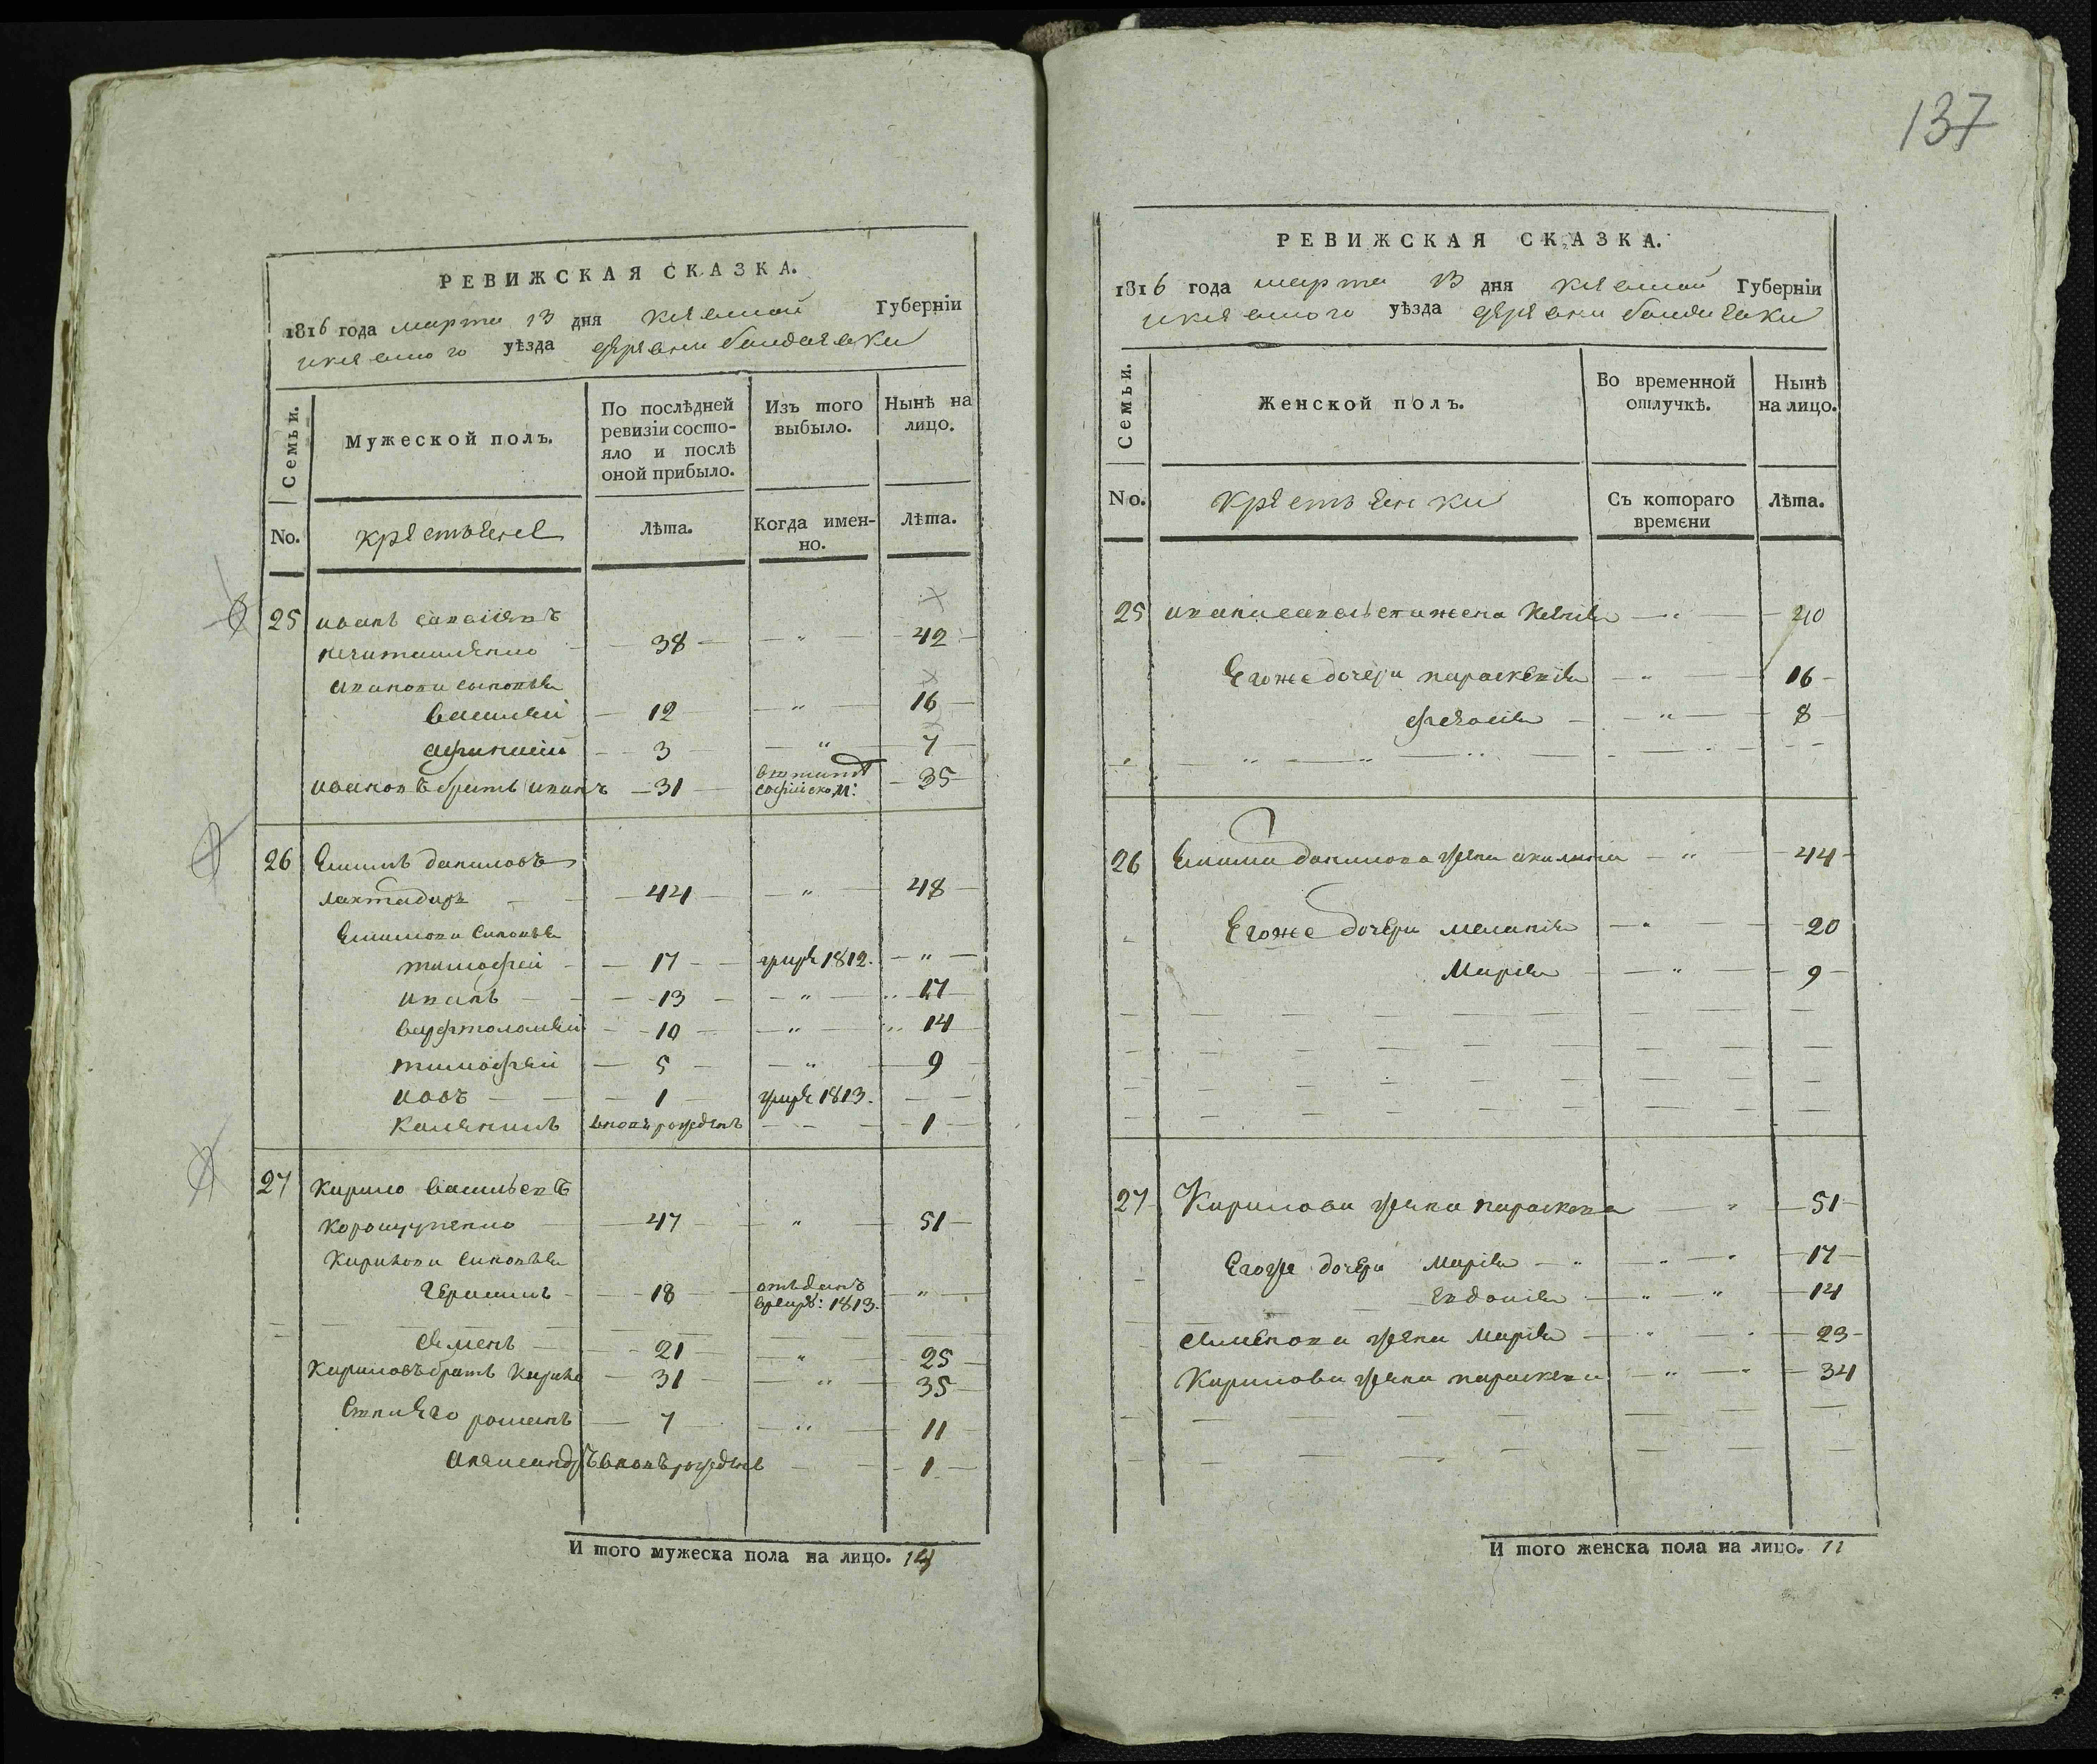 РЕВИЖСКАЯ СКАЗКА.
1816 года марта 13 дня киевской Губернїи
и киевского уѣзда деревни бандаевки
Семьи.
Мужеской полъ.
По послѣдней ревизїи состояло и послѣ оной прибыло.
Изъ того выбыло.
Нынѣ на лицо.
No.
крестьяне
Лѣта.
Когда именно.
Лѣта.
25 иванъ
38 " 42
ивановы сыновья
василий 12 " 16
афанасий 3 " 7
ивановъ братъ иванъ 31 35
26 Екимъ даниловъ
44 " 48
Екимовы сыновья
тимофей 17 умре 1812. "
иванъ 13 " 17
варфоломей 10 " 14
тимофей 5 " 9
иовъ 1 умре 1813.
вновь рожденъ 1
27 Кирило васильевъ
47 " 51
Кириловы сыновья
Герасимъ 18 отъданъ врекру: 1813. "
Семенъ 21 " 25
Кириловъ братъ Кирило 31 " 35
Сынъ Его романъ 7 " 11
александръ вновь рожденъ 1
И того мужеска пола на лицо. 14
137
РЕВИЖСКАЯ СКАЗКА.
1816 года марта 13 дня киевской Губернїи
и киевского уѣзда деревни бандаевки
Семьи.
Женской полъ.
Во временной отлучкѣ.
Нынѣ на лицо.
No.
крестьянки
Съ котораго времени
Лѣта.
25 жена " 40
Егоже дочери параскевия " 16
феодосия " 8
26 Екима данилова жена акилина " 44
Егоже дочери мелания " 20
Мария " 9
27 Кирилова жена параскева " 51
Егоже дочери мария " 17
Евдокия " 14
Семенова жена мария " 23
Кирилова жена параскева " 34
И того женска пола на лицо. 11